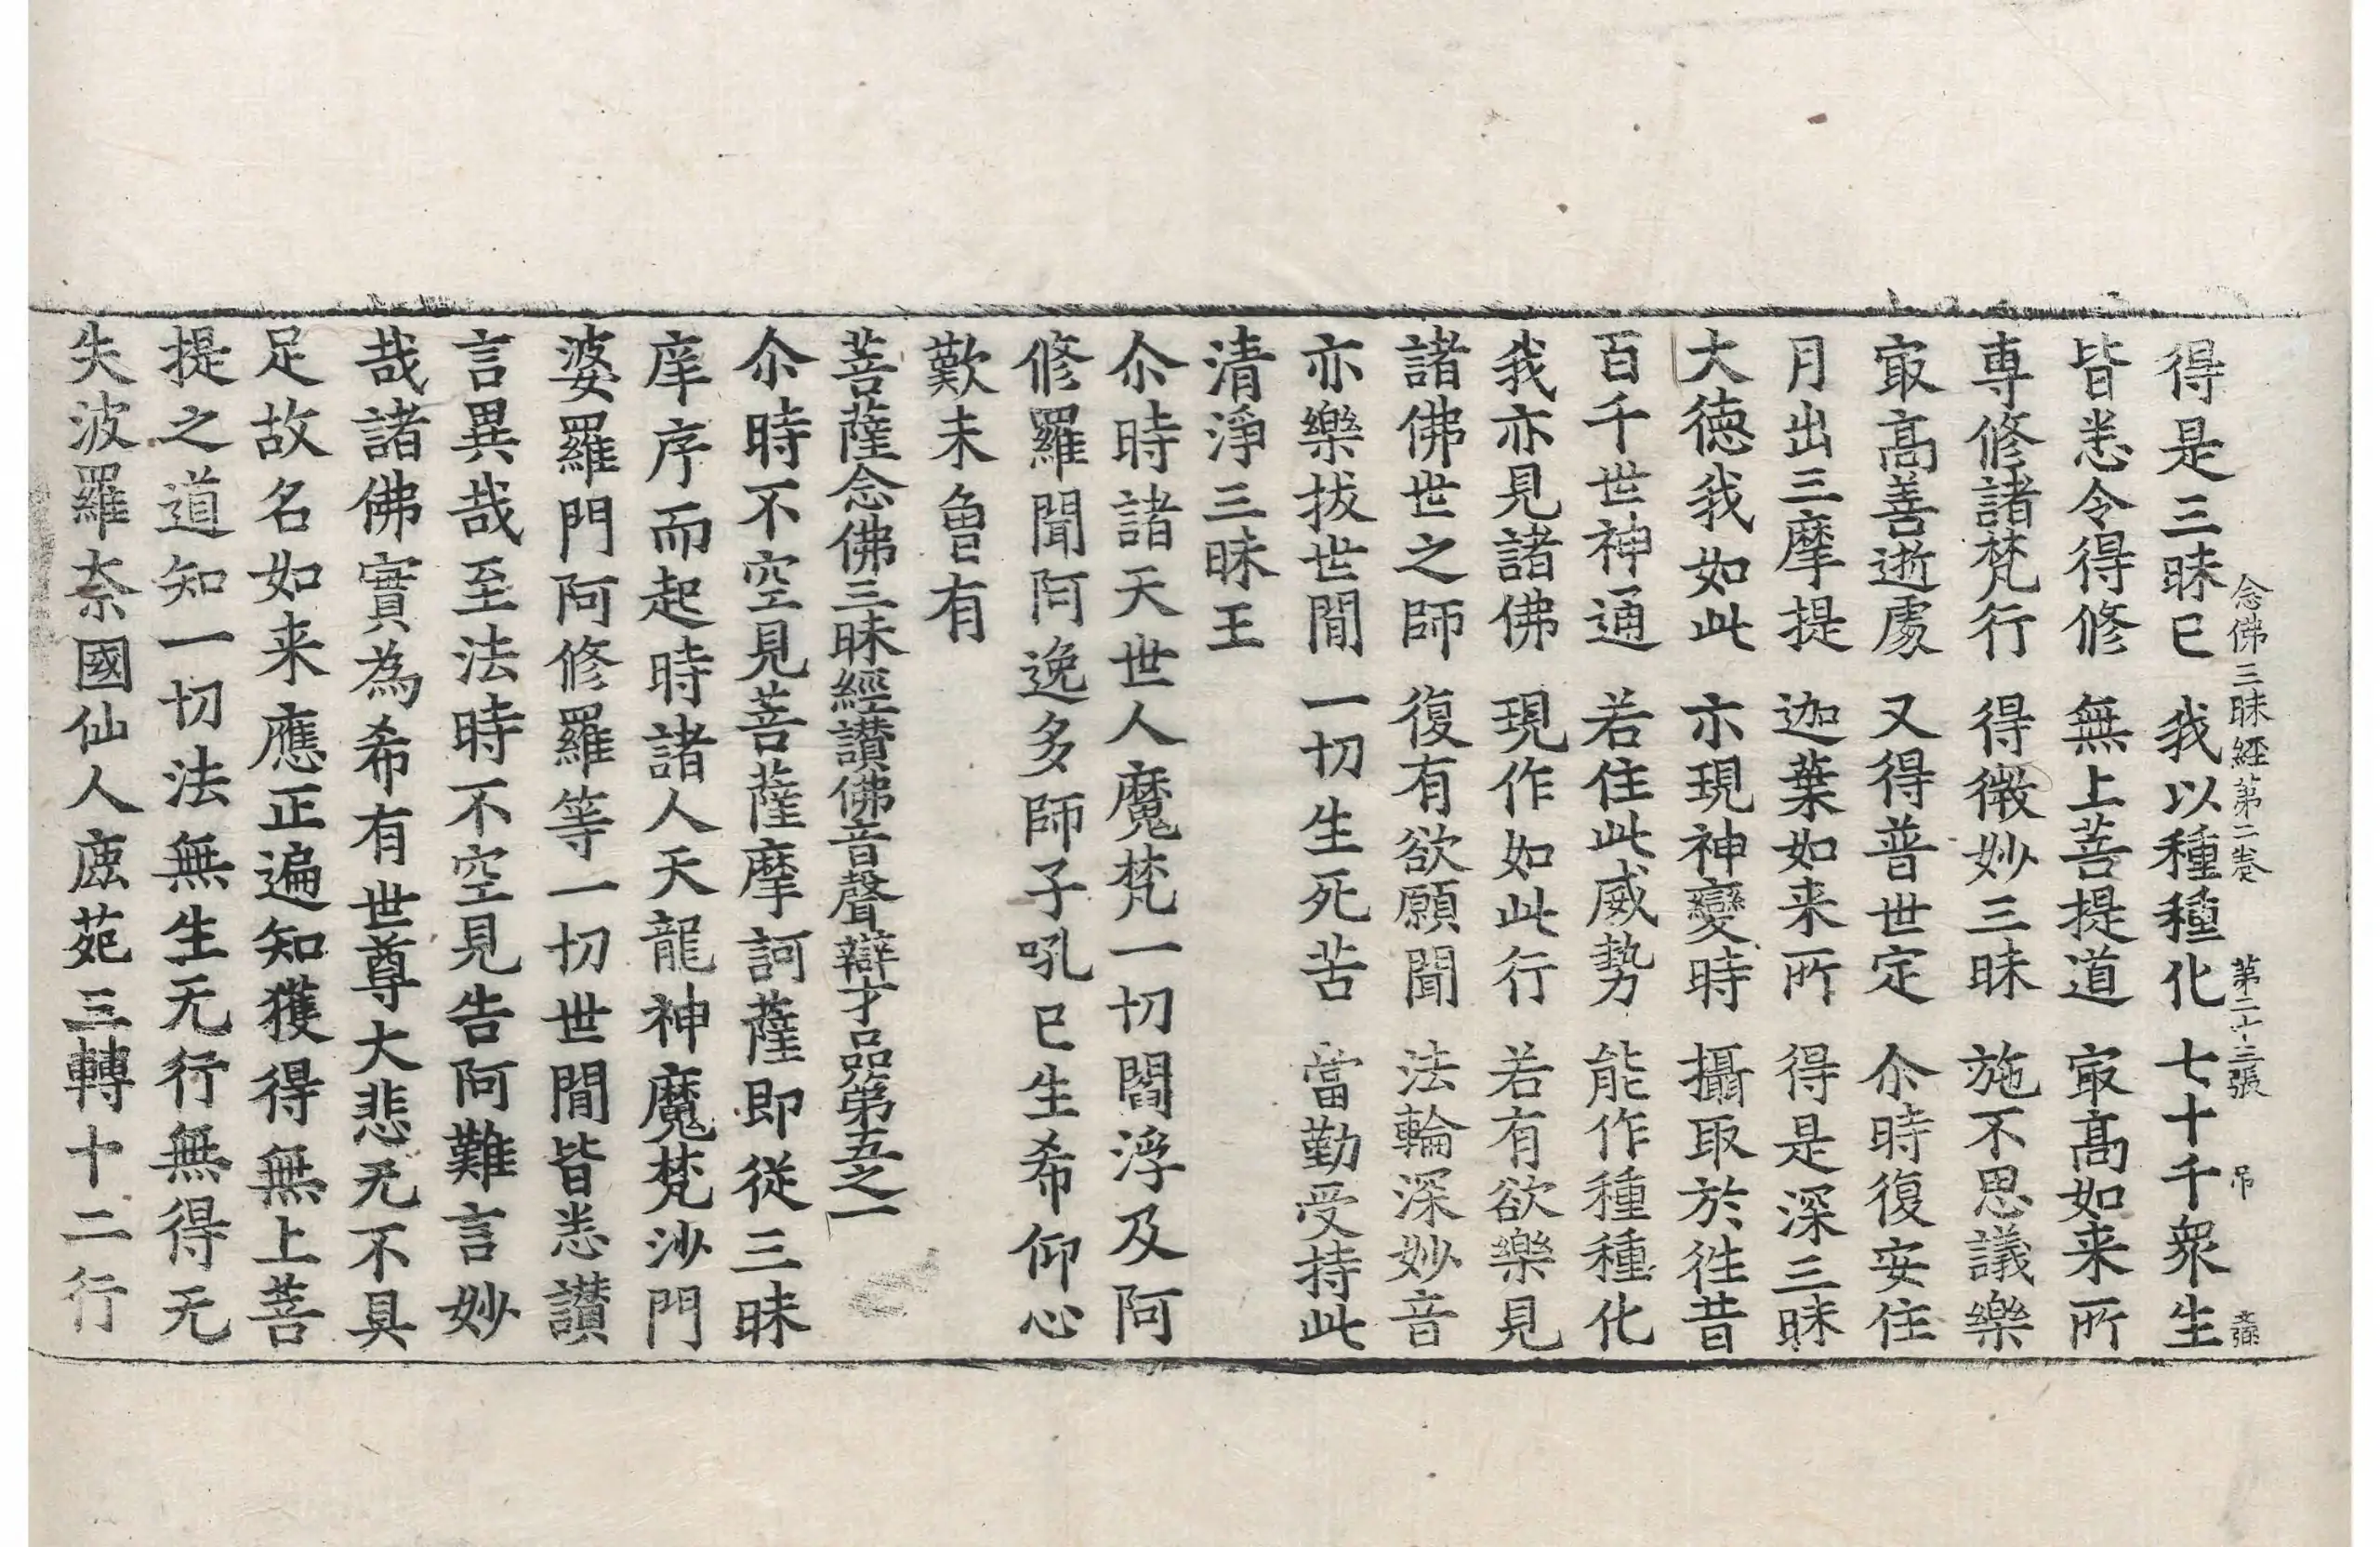 念佛三昧經第二卷 第二十三張 吊
得是三昧已 我以種種化 七十千衆生
皆悉令得修 無上菩提道 冣髙如来所
専修諸梵行 得微妙三昧 施不思議樂
冣髙善逝處 又得普世定 尒時復安住
月出三摩提 迦葉如来所 得是深三昧
大徳我如此 亦現神變時 攝取於徃昔
百千世神通 若住此威勢 能作種種化
我亦見諸佛 現作如此行 若有欲樂見
諸佛世之師 復有欲願聞 法輪深妙音
亦樂拔世閒 一切生死苦 當勤受持此
清淨三昧王
尒時諸天世人魔梵一切閻浮及阿
修羅聞阿逸多師子吼已生希仰心
歎未曾有
菩薩念佛三昧經讃佛音聲辯才品第五之一
尒時不空見菩薩摩訶薩即從三昧
庠序而起時諸人天龍神魔梵沙門
婆羅門阿修羅等一切世間皆悉讃
言異哉至法時不空見告阿難言妙
哉諸佛實為希有世尊大悲旡不具
足故名如来應正遍知獲得無上菩
提之道知一切法無生无行無得无
失波羅柰國仙人鹿苑三轉十二行